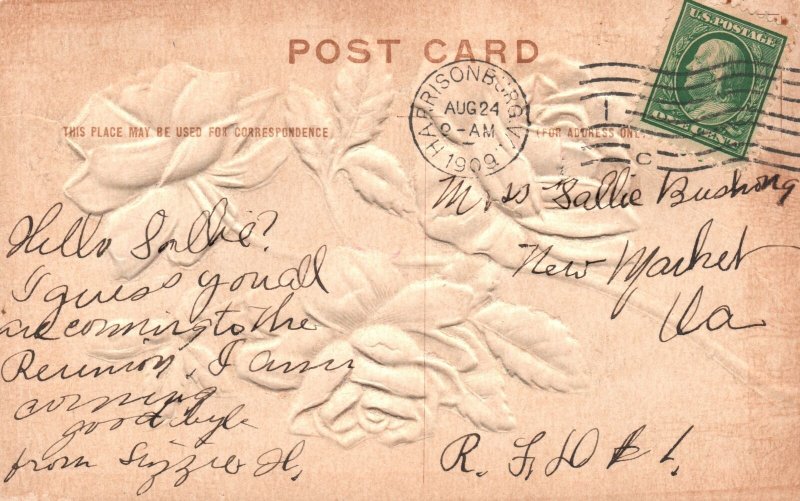 POST CARD
U.S. POSTAGE
HARRISONBURG, VA.
AUG 24
-AM
1909
THIS PLACE MAY BE USED FOR CORRESPONDENCE
(FOR ADDRESS ONLY
Miss Sallie Bushong
New Market
Va
R. F. D # 1.
Hello Sallie?
I guess you all
are coming to the
Reunion, I am
coming
good bye
from Lizzie H.